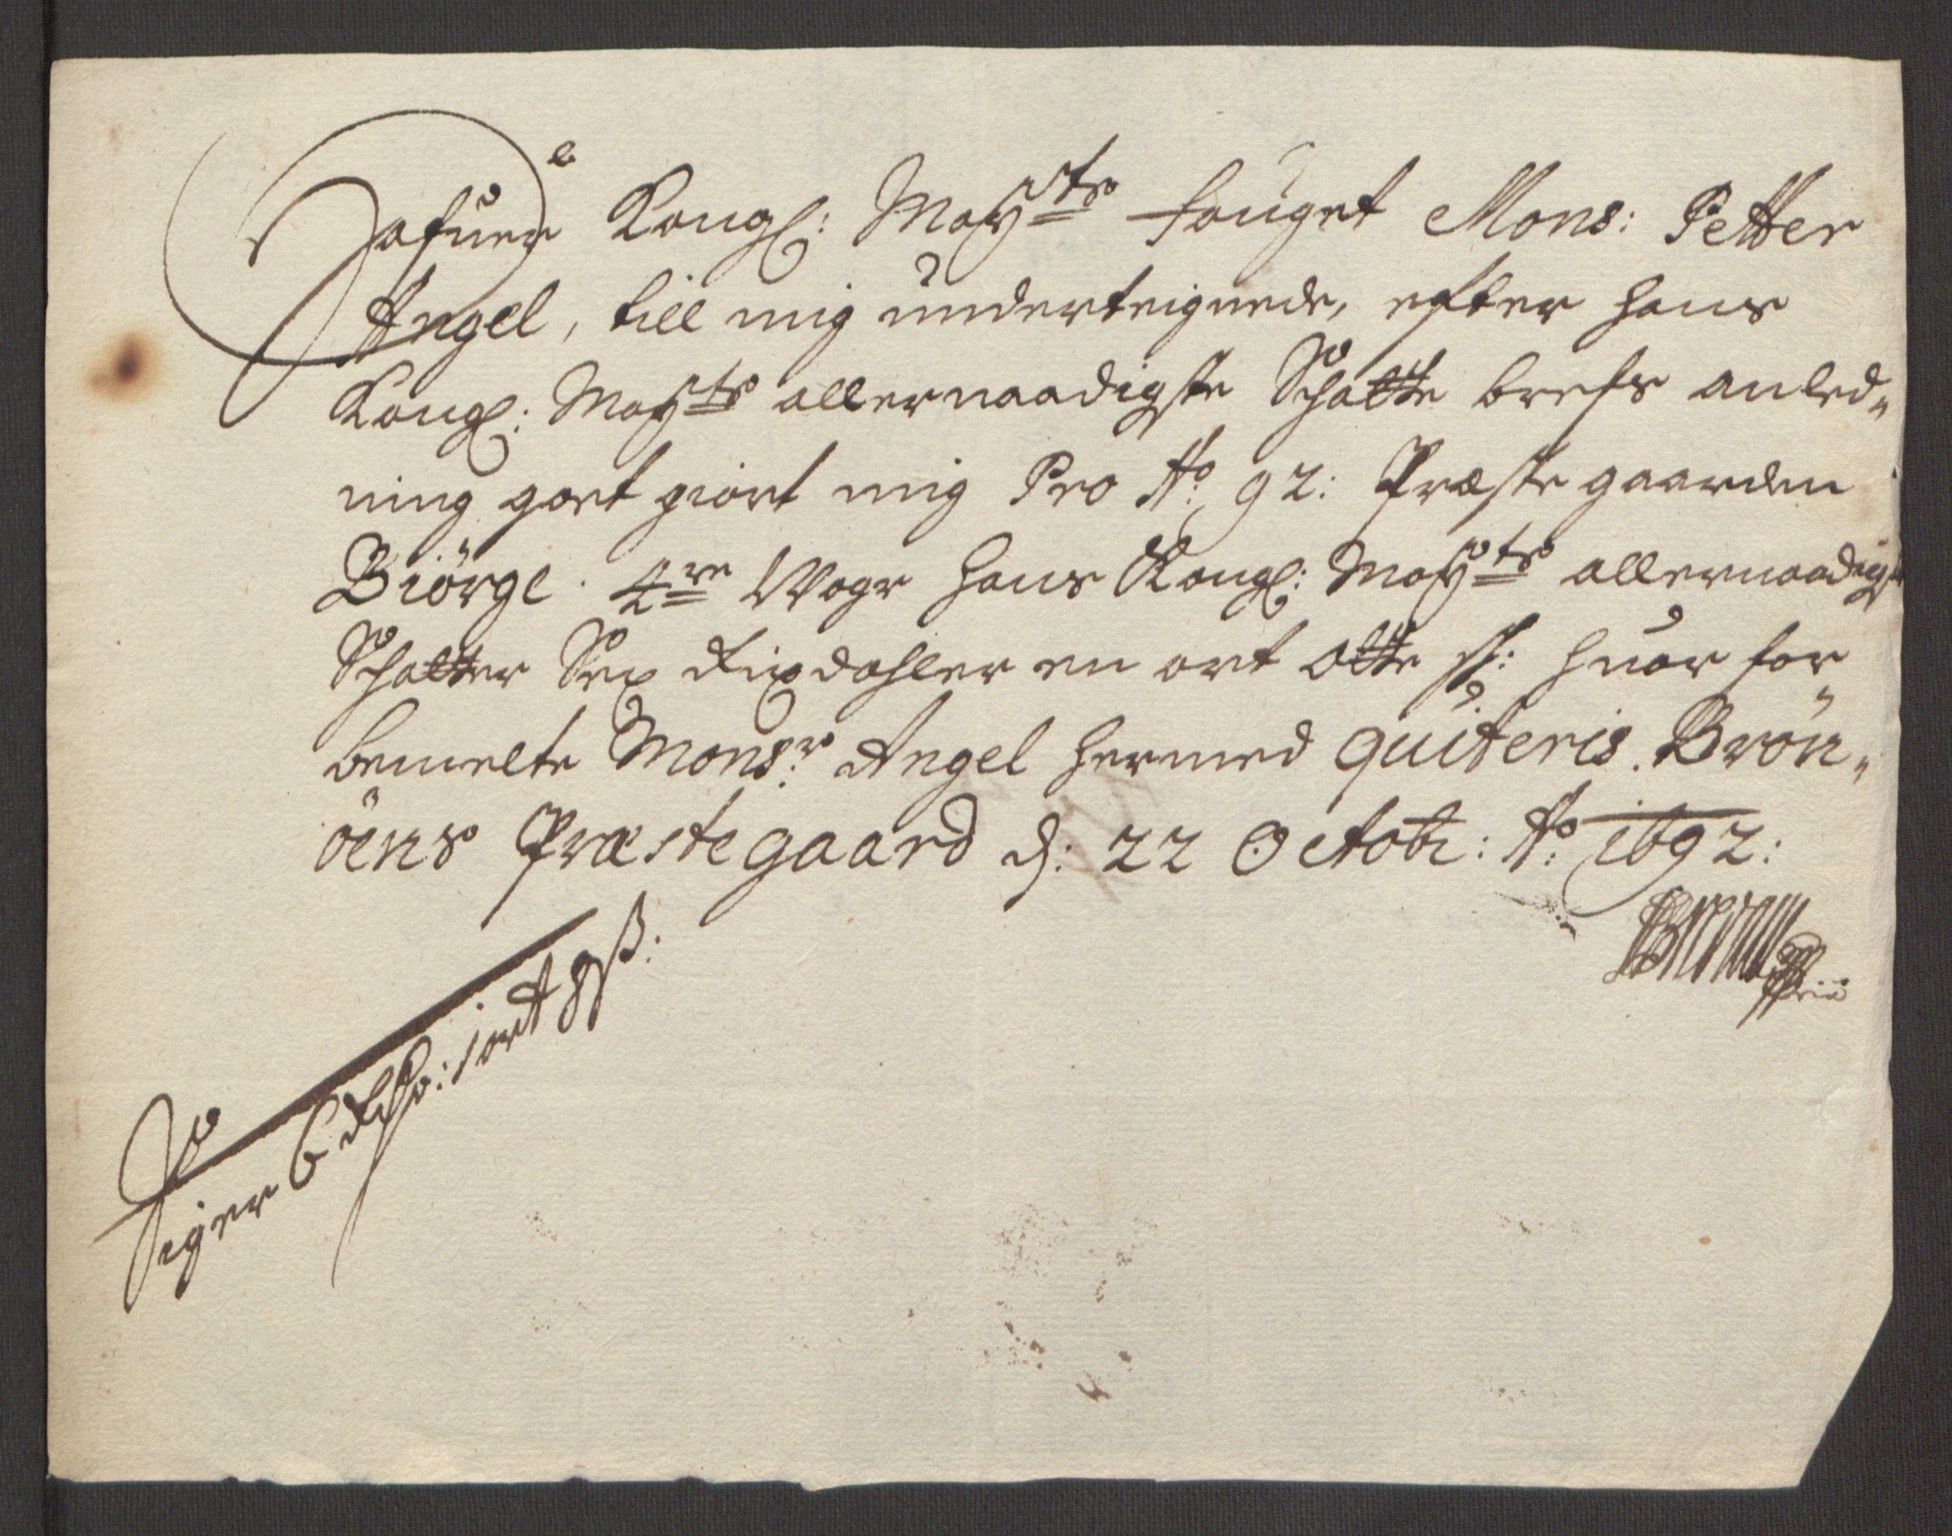 Hafuer Kongl: Maÿts fouget Mons: Petter
Angel, till mig underteignede, efter hans
Kongl: Maÿts allernaadigste Schatte brefs anled-
ning gort giort mig Pro Ao: 92: Præste gaarden
Biörge. 4re Woge hans Kongl: Maÿts allernaadigst
Schatter Sex Rixdahler en ort otte sh: huor for
bemelte Monsr: Angel hermed quiteris. Brön-
öens Præstegaard d: 22 Octobr: Ao: 1692:
Siger 6 Rdr: 1 ort 8 ß: